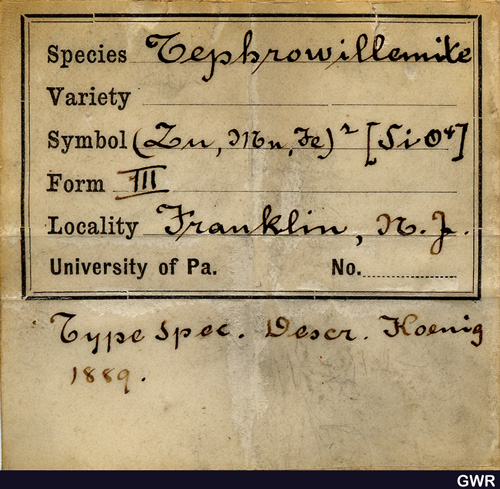 Species Tephrowillemite
Variety
Symbol (Zn, Mn, Fe)² [SiO⁴]
Form III
Locality Franklin, N. J.
University of Pa. No.
Type Spec. Descr. Koenig
1889.
GWR